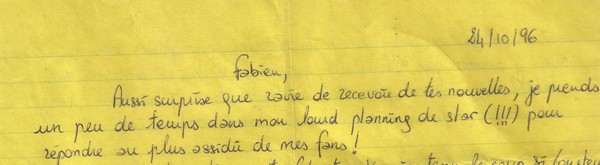 24/10/96
Fabien,
Aussi surprise que ravie de recevoir de tes nouvelles, je prends
un peu de temps dans mon lourd planning de star (!!!) pour
répondre au plus assidu de mes fans !